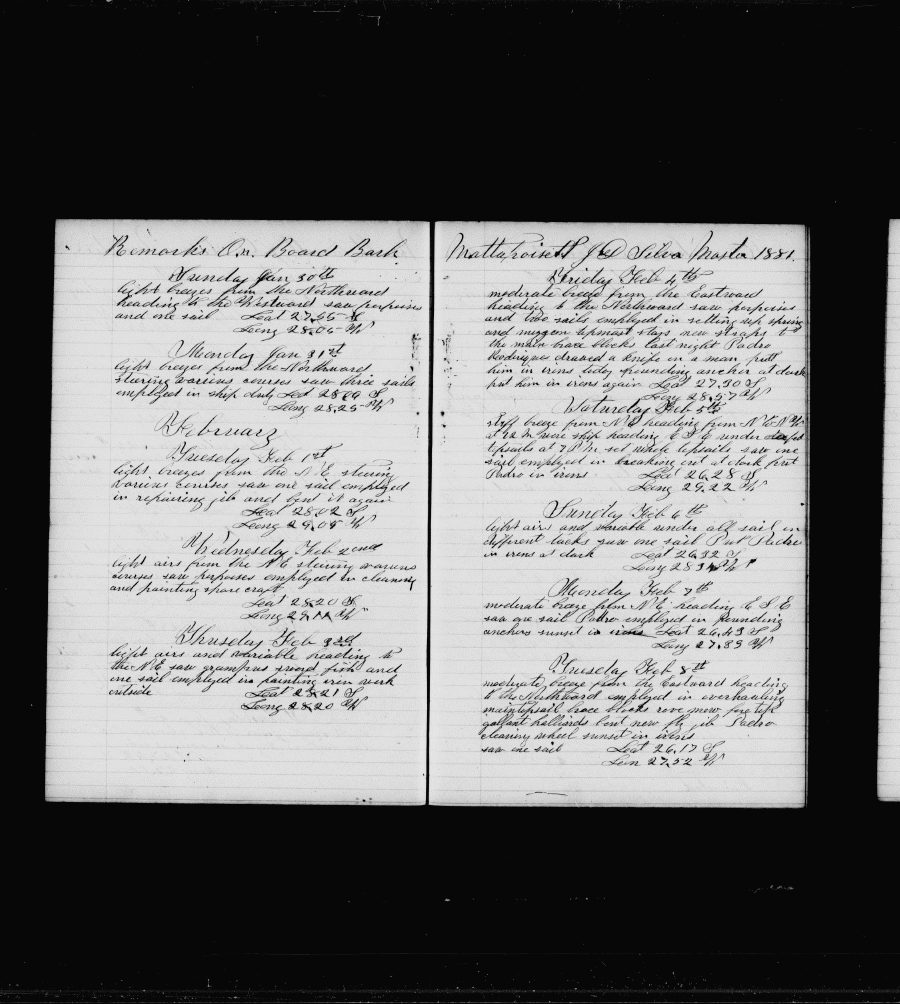 Remarks On Board Bark
Sunday Jan 30th
light breezes from the Northward
heading to the Westward saw porpoises
and one sail Lat 27,55 S
Long 28,05 W
Monday Jan 31st
light breezes from the Northward
steering various courses saw three sails
employed in ship duty Lat 28,09 S
Long 28,25 W
February
Tuesday Feb 1st
light breezes from the N.E. steering
various courses saw one sail employed
in repairing jib and bent it again
Lat 28,02 S
Long 29,05 W
Wednesday Feb 2nd
light airs from the N E steering various
courses saw porpoises employed in cleaning
and painting spare craft
Lat 28,20 S
Long 29,11 W
Thursday Feb 3rd
light airs and variable heading to
the N.E saw grampus sword fish and
one sail employed in painting iron work
outside Lat 28,21 S
Long 28,20 W
Mattapoisett J D Silva Master 1881.
Friday Feb 4th
moderate breeze from the Eastward
heading to the Northward saw porpoises
and two sails employed in setting up spring
and mizzen topmost stays new straps to
the main brace blocks last night Padro
Rodrigues drawed a knife on a man putt
him in irons today pounding anchor at dark
put him in irons again Lat 27,30 S
Long 28,57 W
Saturday Feb 5th
stiff breeze from N E heading from N to N W
at 12 M wore ship heading E S E under
topsails at 7 P M set whole topsails saw one
sail employed in breaking out at dark put
Padro in irons Lat 26,28 S
Long 29,22 W
Sunday Feb 6th
light airs and variable under all sail on
different tacks saw one sail Put Padro
in irons at dark Lat 26,32 S
Long W
Monday Feb 7th
moderate breeze from N E heading E S E
saw one sail Padro employed in pounding
anchors sunset in irons Lat 26,43 S
Long 27,89 W
Tuesday Feb 8th
moderate breeze from the Eastward heading
to the Northward employed in overhauling
maintopsail brace blocks rove new fore top
gallant halliards bent new fly jib Padro
cleaning wheel sunset in irons
saw one sail Lat 26,17 S
Lon 27,52 W